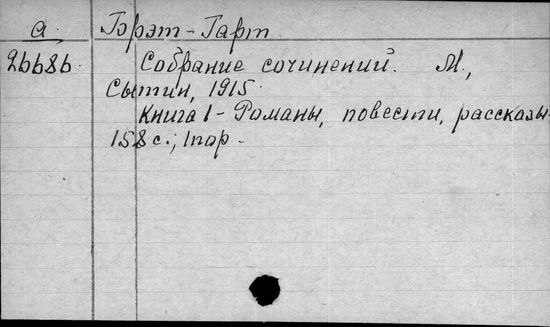 а Брэт-Гарт
26686 Собрание сочинений. М.,
Сытин, 1915.
Книга I - Романы, повести, рассказы
158 с.; 1 пор.